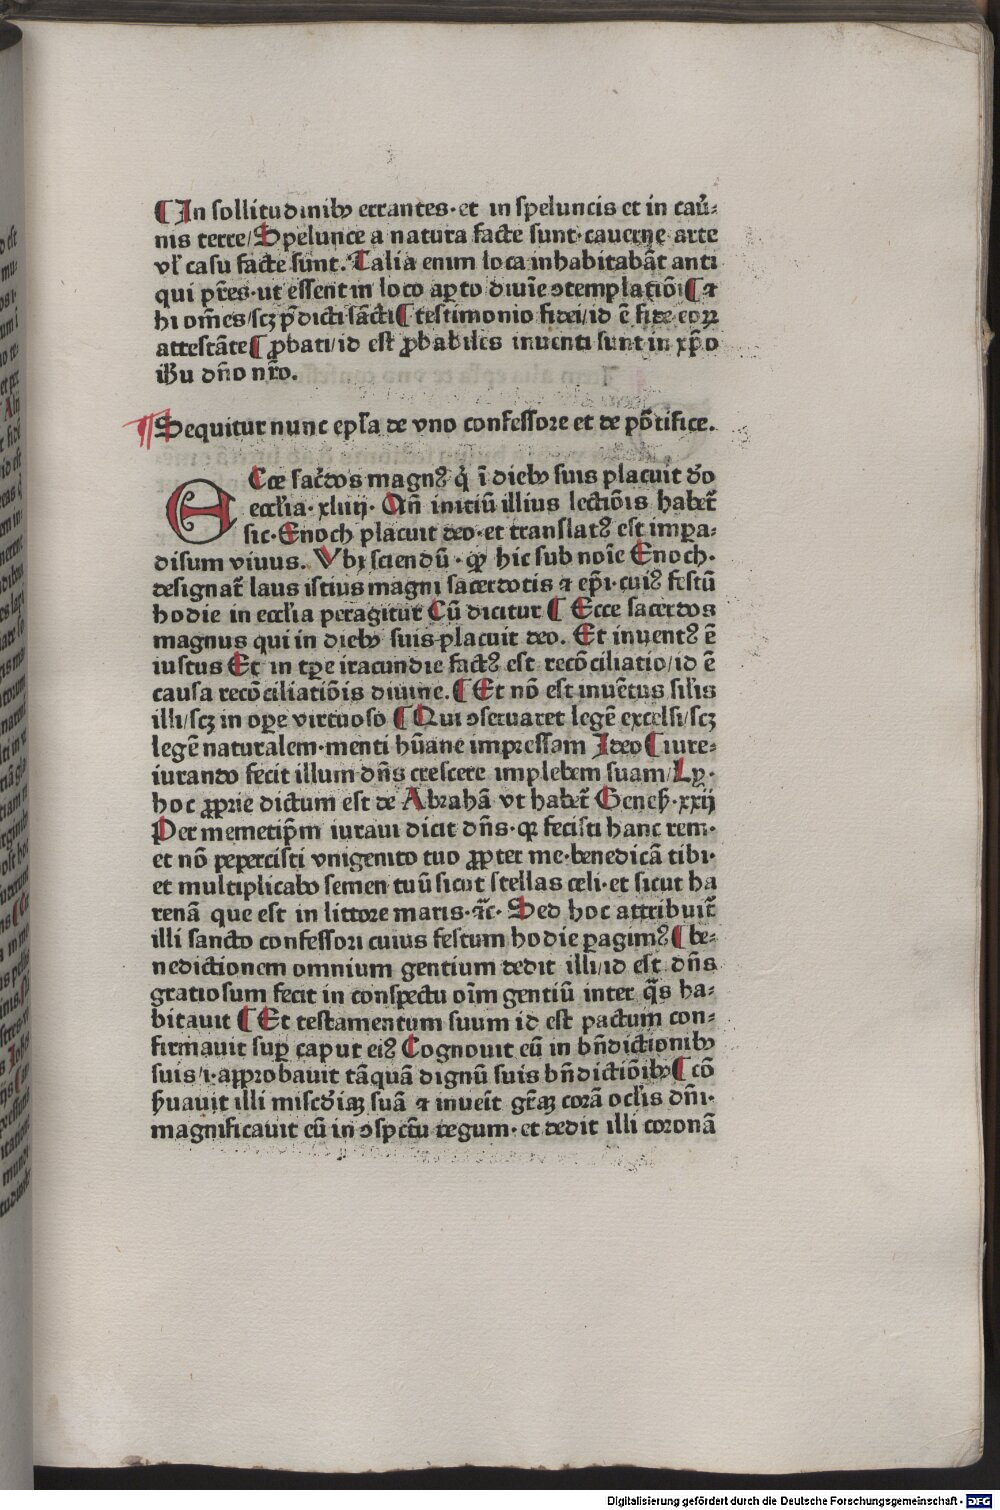 ¶ In sollitudinibꝰ errantes· et in speluncis et in cau̓⸗
nis terre/ Spelunce a natura facte sunt· cauerne arte
vl̓ casu facte sunt. Talia enim loca inhabitabāt anti
qui pr̄es· ut essent in loco aꝑto diuīe ꝯtemplatiōi ¶ ⁊
hi om̄es/ scꝫ p̄dicti sācti ¶ testimonio fidei/ id ē fide eoꝝ
attestāte ¶ ꝓbati/ id est ꝓbabiles inuenti sunt in xp̄o
ihū dn̄o nr̄o.
Sequitur nunc epl̓a de vno confessore et de pōtifice.
ECce sac̓dos magnꝰ q̇ ī diebꝰ suis placuit do̅
eccl̓ia· xliiij· Qn̄ initiū illius lectiōis habet̄
sic· Enoch placuit deo· et translatꝰ est in ꝑa⸗
disum viuus. Vbi sciendū· ꝙ hic sub noīe Enoch·
designat̄ laus istius magni sacerdotis ⁊ ep̄i· cuiꝰ festū
hodie in eccl̓ia peragitur Cū dicitur ¶ Ecce sacerdos
magnus qui in diebꝰ suis placuit deo. Et inuentꝰ ē
iustus Et in tꝑe iracundie factꝰ est recōciliatio/ id ē
causa recōciliatiōis diuine. ¶ Et nō est inuētus sil̓is
illi/ scꝫ in oꝑe virtuoso ¶ Qui ꝯseruaret legē excelsi/ scꝫ
legē naturalem· menti hūane impressam Ideo ¶ iure⸗
iurando fecit illum dn̄s crescere in plebem suam/ Ly·
hoc ꝓprie dictum est de Abrahā vt habet̄ Geneẜ· xxij
Per memetip̄m iuraui dicit dn̄s· qꝛ fecisti hanc rem·
et nō pepercisti vnigenito tuo ꝓpter me· benedicā tibi·
et multiplicabo semen tuū sicut stellas celi· et sicut ha
renā que est in littore maris· ⁊c̄· Sed hoc attribuit̄
illi sancto confessori cuius festum hodie ꝑagimꝰ ¶ be⸗
nedictionem omnium gentium dedit illi/ id est dn̄s
gratiosum fecit in conspectu oīm gentiū inter q̄s ha⸗
bitauit ¶ Et testamentum suum id est pactum con⸗
firmauit suꝑ caput eiꝰ Cognouit eū in bn̄dictionibꝰ
suis/ i· approbauit tāquā dignū suis bn̄dictiōibꝰ ¶ cō
ẜuauit illi misc̓diaꝫ suā ⁊ inueīt gr̄aꝫ corā ocl̓is dn̄i·
magnificauit eū in ꝯspc̄tu regum· et dedit illi coronā
Digitalisierung gefördert durch die Deutsche Forschungsgemeinschaft - DFG